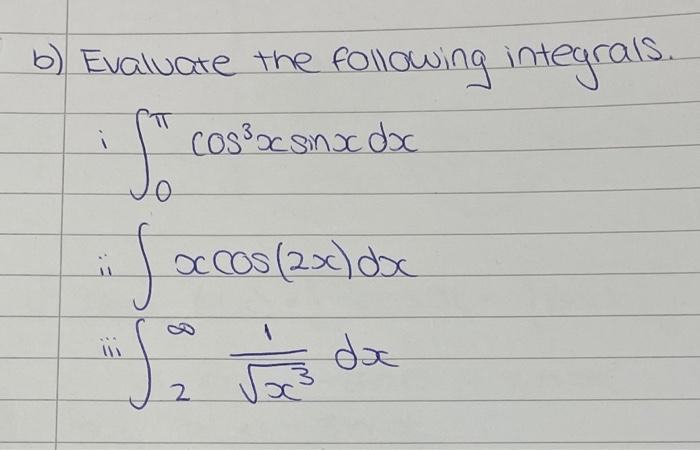 b) Evaluate the following integrals.
i ∫₀^π cos³x sinx dx
ii ∫ x cos(2x) dx
iii ∫₂^∞ 1/√x³ dx